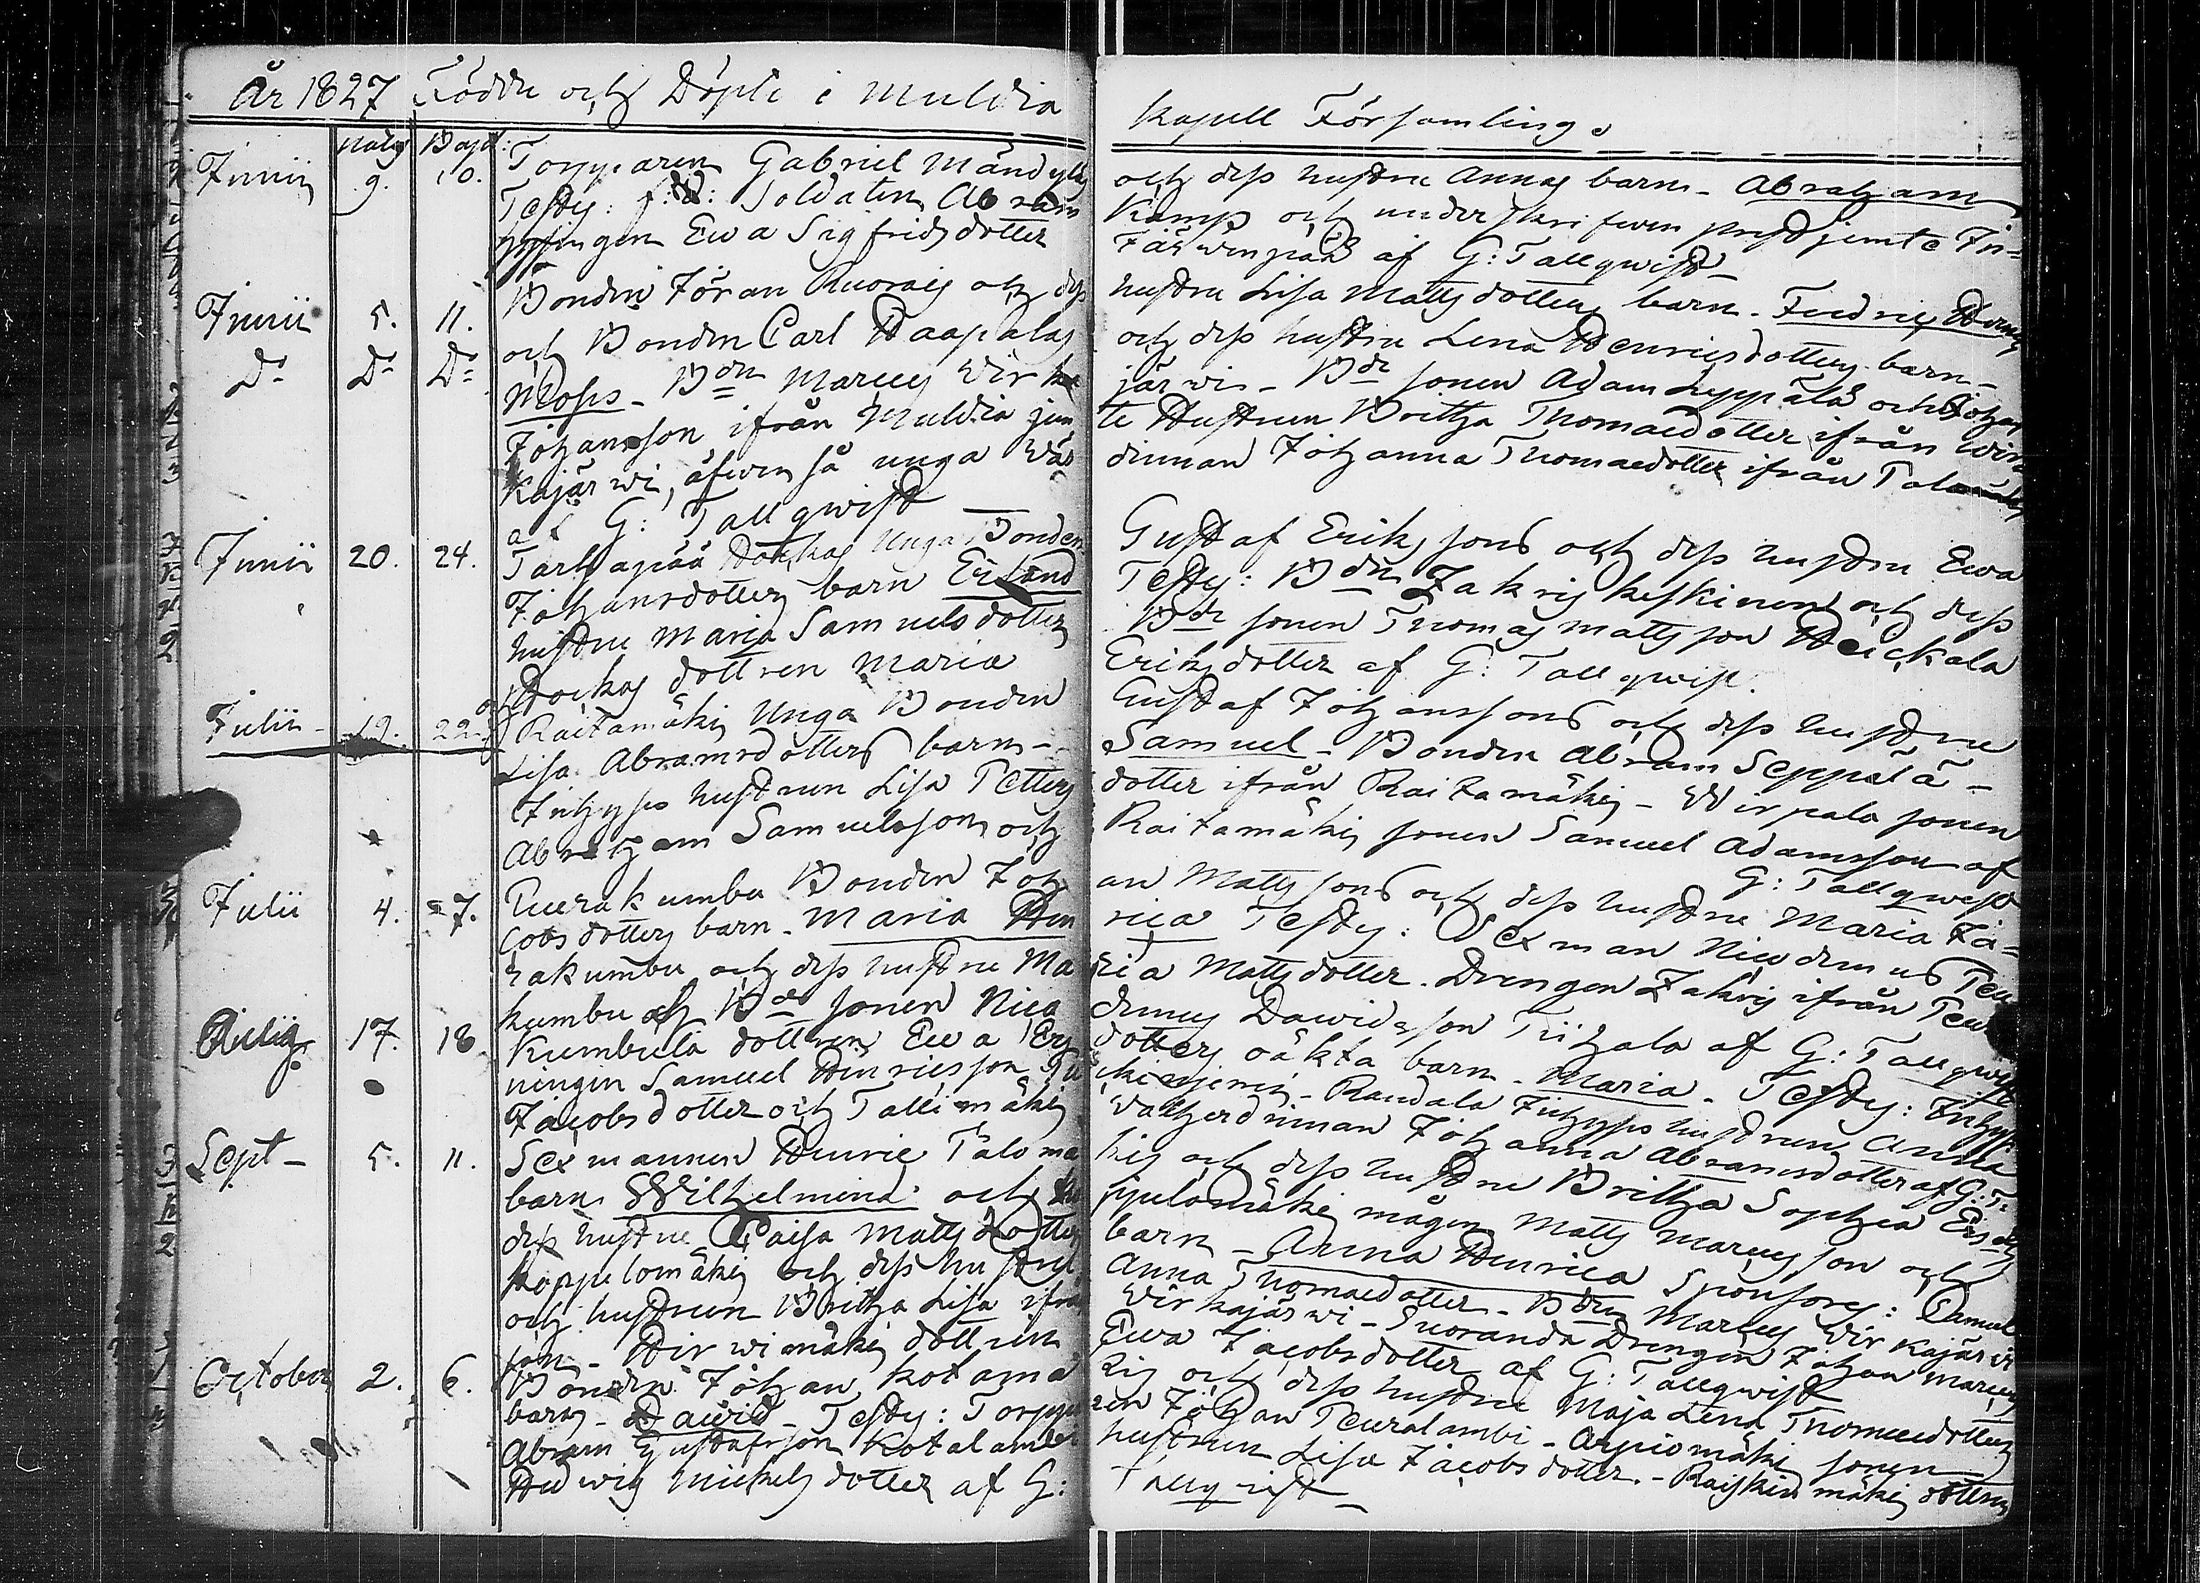 År 1827 Födde och Döpte i Muldia
natus Bapt:
Junii 9. 10. Torpparen Gabriel Mändylä
Testes: f. d: Soldaten Abram
Ewa Sigfridsdotter
Junii 5. 11. Bonden Jöran Ruorais och dess
Do Do Do och Bonden Carl Haapalas
Moses - Bdn Marcus Wirka
Johansson ifrån Muldia jem
kajärwi, äfwen så unga Wär
af G: Tallqwist
Junii 20. 24. Tarhapää Unga Bonden
Johansdotters barn Erland
hustru Maria Samuelsdotter
dottren Maria
Julii - 19. 22. Raitamäki Unga Bonden
Lisa Abramsdotters barn -
Inhyses hustrun Lisa Petters
Abraham Samuelsson och
Julii 4. 7. Bonden Joh
cobsdotters barn - Maria Hen
rakumbu och dess hustru Ma
kumbu och Bde sonen Nico
17. 18 Kumbula dottren Ewa
ningen Samuel Henricsson
Jacobsdotter och Tallimäki
Sept - 5. 11. Sexmannen Henric Taloma
barn Wilhelmina och
dess hustru Caisa Matts dotter
Koppelomäki och dess hustru
och hustrun Britha Lisa ifrån
son - Hirwimäki dottren
October 2. 6. Bonden Johan Kotama
barn - Dawid - Testes: Torppa
Abram Gustafsson Kotalambi
Hedwig Mickelsdotter af G:
Kapell Församling.
och dess hustru Annas barn - Abraham
Kamp och underskrifwen prest jemte In=
Järwenpää af G: Tallqwist
hustru Lisa Mattsdotters barn - Fredric
och dess hustru Lena Henricsdotters barn -
järwi - Bde sonen Adam Leppälä och Johan
te Hustrun Britha Thomaedotter ifrån Wir
dinnan Johanna Thomaedotter ifrån
Gustaf Erikssons och dess hustru Ewa
Testes: Bdn Zakris Keskinen och dess
Bde sonen Thomas Mattsson Heickala
Eriksdotter af G: Tallqwist.
Gustaf Johanssons och dess hustru
Samuel - Bonden Abram Seppälä -
dotter ifrån Raitamäki - Wirpala sonen
Raitamäki sonen Samuel Adamsson af
G: Tallqwist
an Mattssons och dess hustru Maria Ja=
rica Testes: Sexman Nicodemus Peu
ria Mattsdotter. Drengen Zakris ifrån Peura
demus Dawidsson Tiihala af G: Tallqwist
dotters oäkta barn - Maria - Testes: Inhys
- Randala Inhyses hustrun Anna
Johanna Abramsdotter af G: T.
ki och dess hustru Britha Sophia Ers
Koppelomäki mågen Matts Marcusson och
barn - Anna Henrica Sponsores: Samuel
Anna Thomaedotter - Bdn Marcus Wirkajärwi
Wirkajärwi - Suoranda Drengen Johan Marcus
Ewa Jacobsdotter af G: Tallqwist
ki och dess hustru Maja Lena Thomaedotters
ren Johan Peuralambi - Arpiomäki sonen
hustrun Lisa Jacobsdotter. - Raiskinmäki dottren
Tallqwist -